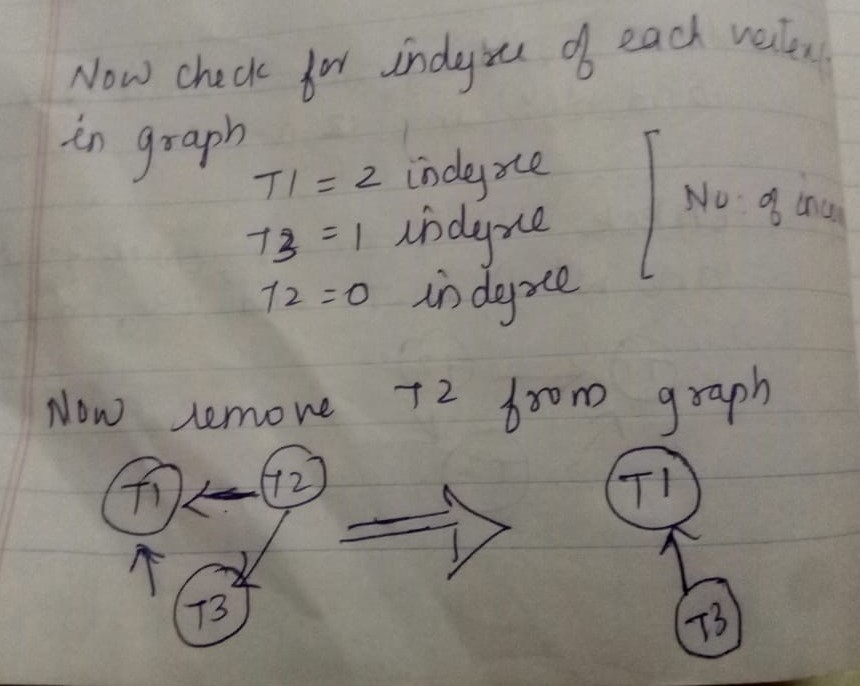 Now check for indegree of each
in graph
T1 = 2 indegree
T3 = 1 indegree
T2 = 0 indegree
No. of
Now remove T2 from graph
T1 T2 T1
T3 T3